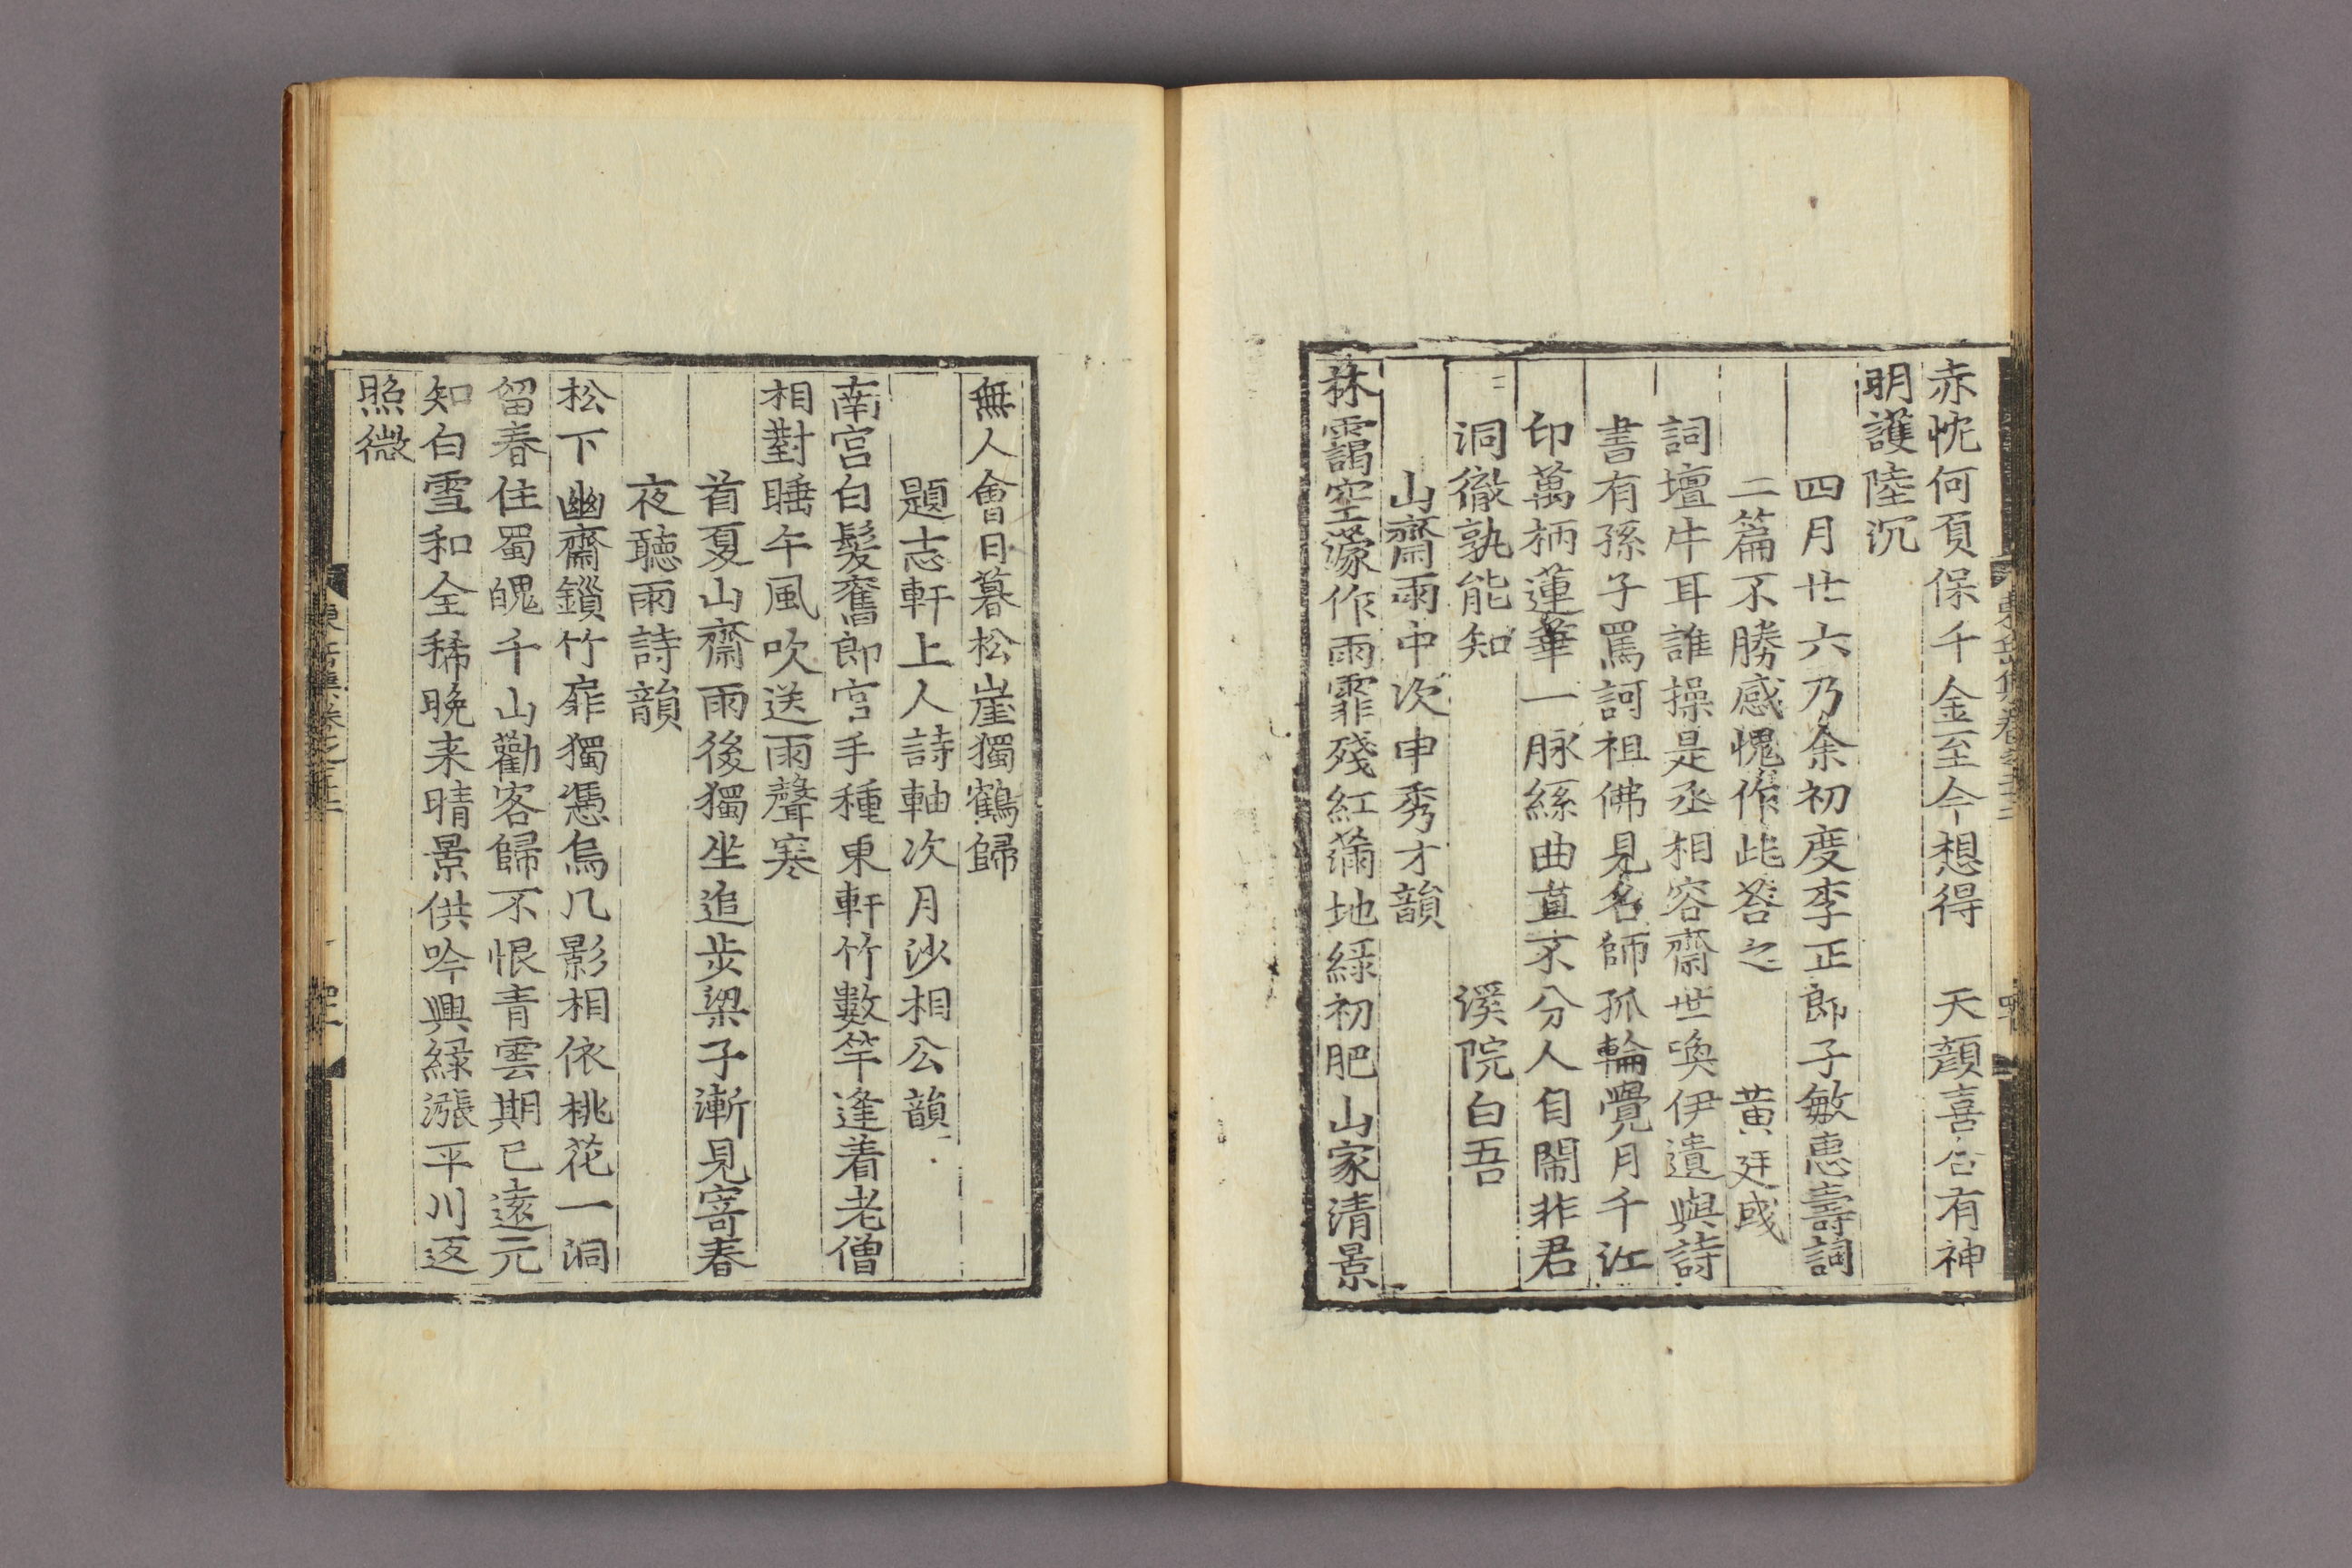 赤忱何負保千金至今想得 天顔喜合有神
明護陸沉
四月廿六乃余初度李正郎子敏惠壽詞
二篇不勝感愧作此荅之 黄廷彧
詞壇牛耳誰操是丞相容齋世喚伊遺與詩
書有孫子罵訶祖佛見名師孤輪覺月千江
印萬柄蓮華一脉絲曲直不分人自鬧非君
洞徹孰能知 溪院白吾
山齋雨中次申秀才韻
林靄空濛作雨霏殘紅滿地緑初肥山家清景
無人會日暮松崖獨鶴歸
題志軒上人詩軸次月沙相公韻
南宫白髮舊郎官手種東軒竹數竿逢着老僧
相對睡午風吹送雨聲寒
首夏山齋雨後獨坐追步梁子漸見寄春
夜聽雨詩韻
松下幽齋鎖竹扉獨憑烏几影相依桃花一洞
留春住蜀魄千山勸客歸不恨青雲期已遠元
知白雪和全稀晚来晴景供吟興緑漲平川返
照微